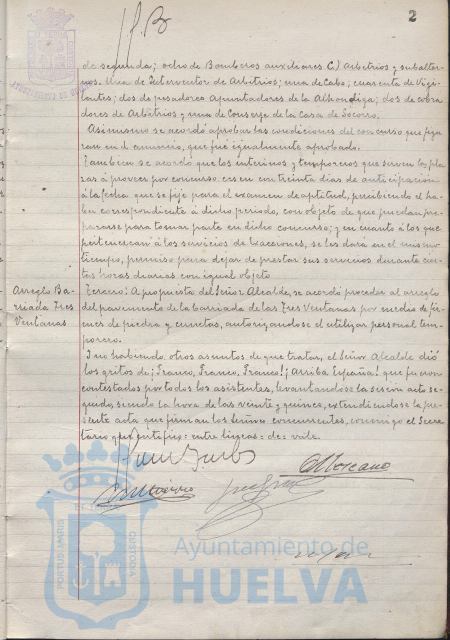 2
de segunda; ocho de Bomberos auxiliares C) Arbitrios y subalter-
nos. Una de Interventor de Arbitrios; una de Cabo; cuarenta de Vigi-
lantes; dos de pesadores Apuntadores de la Alhondiga; dos de cobra-
dores de Arbitrios y una de Conserje de la Casa de Socorro.
Asimismo se acordó aprobar las condiciones del concurso que figu-
ran en el anuncio, que fué igualmente aprobado.
Tambien se acordó que los interinos y temporeros que sirven las pla-
zas á proveer por concurso cesen con treinta dias de anticipación
á la fecha que se fije para el examen de aptitud, percibiendo el ha-
ber correspondiente á dicho periodo, con objeto de que puedan pre-
pararse para tomar parte en dicho concurso; y en cuanto á los que
pertenezcan á los servicios de Exacciones, se les dará en el mismo
tiempo, permiso para dejar de prestar sus servicios durante cier-
tas horas diarias con igual objeto
Arreglo Ba-
rriada Tres
Ventanas
Tercero: A propuesta del Señor Alcalde, se acordó proceder al arreglo
del pavimento de la barriada de las Tres Ventanas por medio de fir-
mes de piedra y cunetas, autorizandose el utilizar personal tem-
porero.
Y no habiendo otros asuntos de que tratar, el Señor Alcalde dió
los gritos de ¡Franco, Franco, Franco! ¡Arriba España! que fueron
contestados por todos los asistentes, levantandose la sesion acto se-
guido, siendo la hora de las veinte y quince, extendiendose la pre-
sente acta que firman los Señores concurrentes, conmigo el Secre-
tario que certifico: entre lineas = de = vale.
Ayuntamiento de
HUELVA
PORTUS MARIS
CUSTODIA